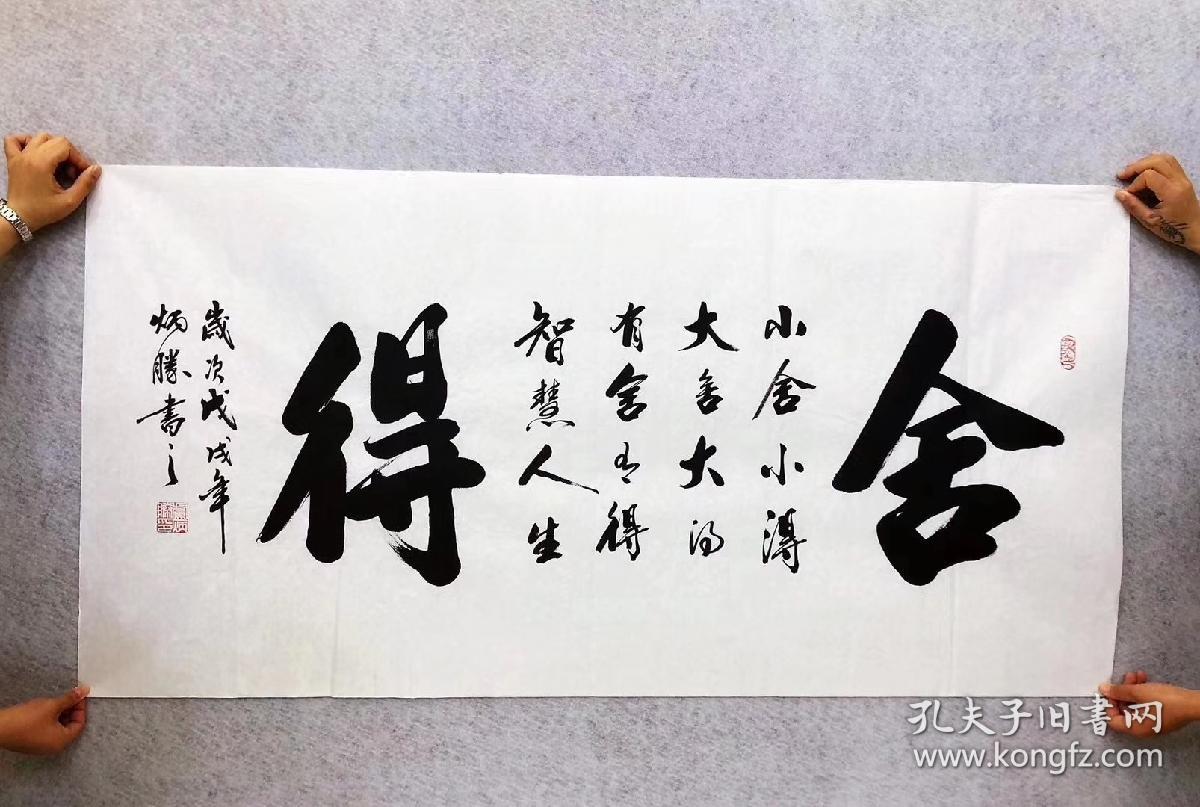 舍
小舍小得
大舍大得
有舍有得
智慧人生
得
歲次戊戌年
炳勝書之
孔夫子旧书网
www.kongfz.com